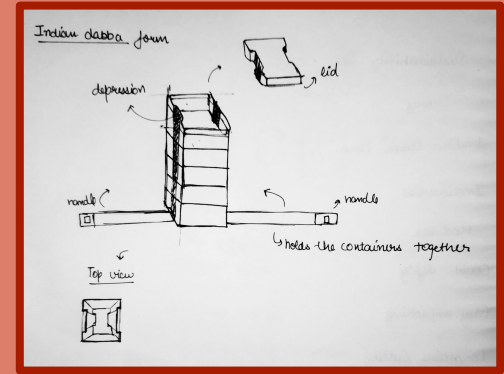 Indian dabba form
lid
depression
handle
handle
holds the containers together
Top view